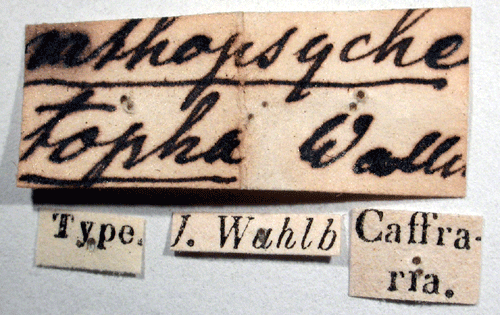 nthopsyche
topha Walle
Type.
J. Wahlb
Caffra-
ria.